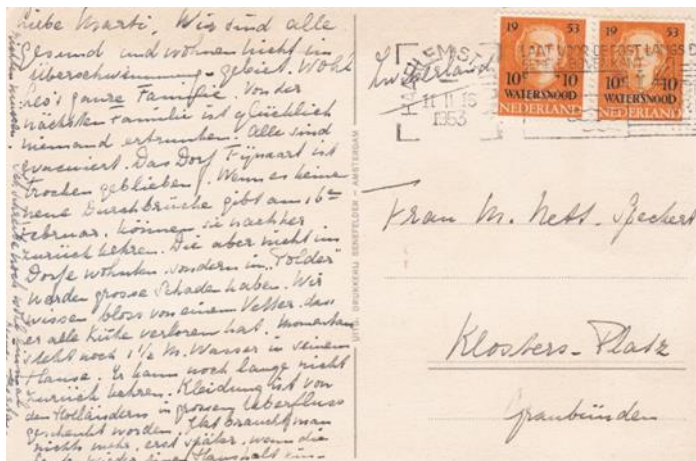 Liebe Marti, Wir sind alle
gesund und wohnen nicht im
überschwemmungs-gebiet. Wohl
Leo's ganze Familie. Von der
nächsten Familie ist glücklich
niemand ertrunken. Alle sind
evacuiert. Das Dorf Fijnaart ist
trocken geblieben. Wenn es keine
neue Durchbrüche gibt am 16en
Februar, können sie nachher
zurück kehren. Die aber nicht im
Dorfe wohnten, sondern in "Polder"
werden grosse Schaden haben. Wir
wissen bloss von einem Vetter, dass
er alle Kühe verloren hat. Momentan
steht noch 1½ M. Wasser in seinem
Hause. Er kann noch lange nicht
zurück kehren. Kleidung ist von
den Holländern in grossem Ueberfluss
geschenkt worden. Das braucht man
nichts mehr, erst später, wenn die
wieder einen Haushalt ein-
UITG. DRUKKERIJ SENEFELDER - AMSTERDAM
Zwitserland
HAARLEM
11 II 15
1953
LAAT VOOR DE POST LANGS D
19 53
10c+10
WATERSNOOD
NEDERLAND
19 53
10c+10
WATERSNOOD
NEDERLAND
Frau M. Nett-
Klosters-Platz
Graubünden